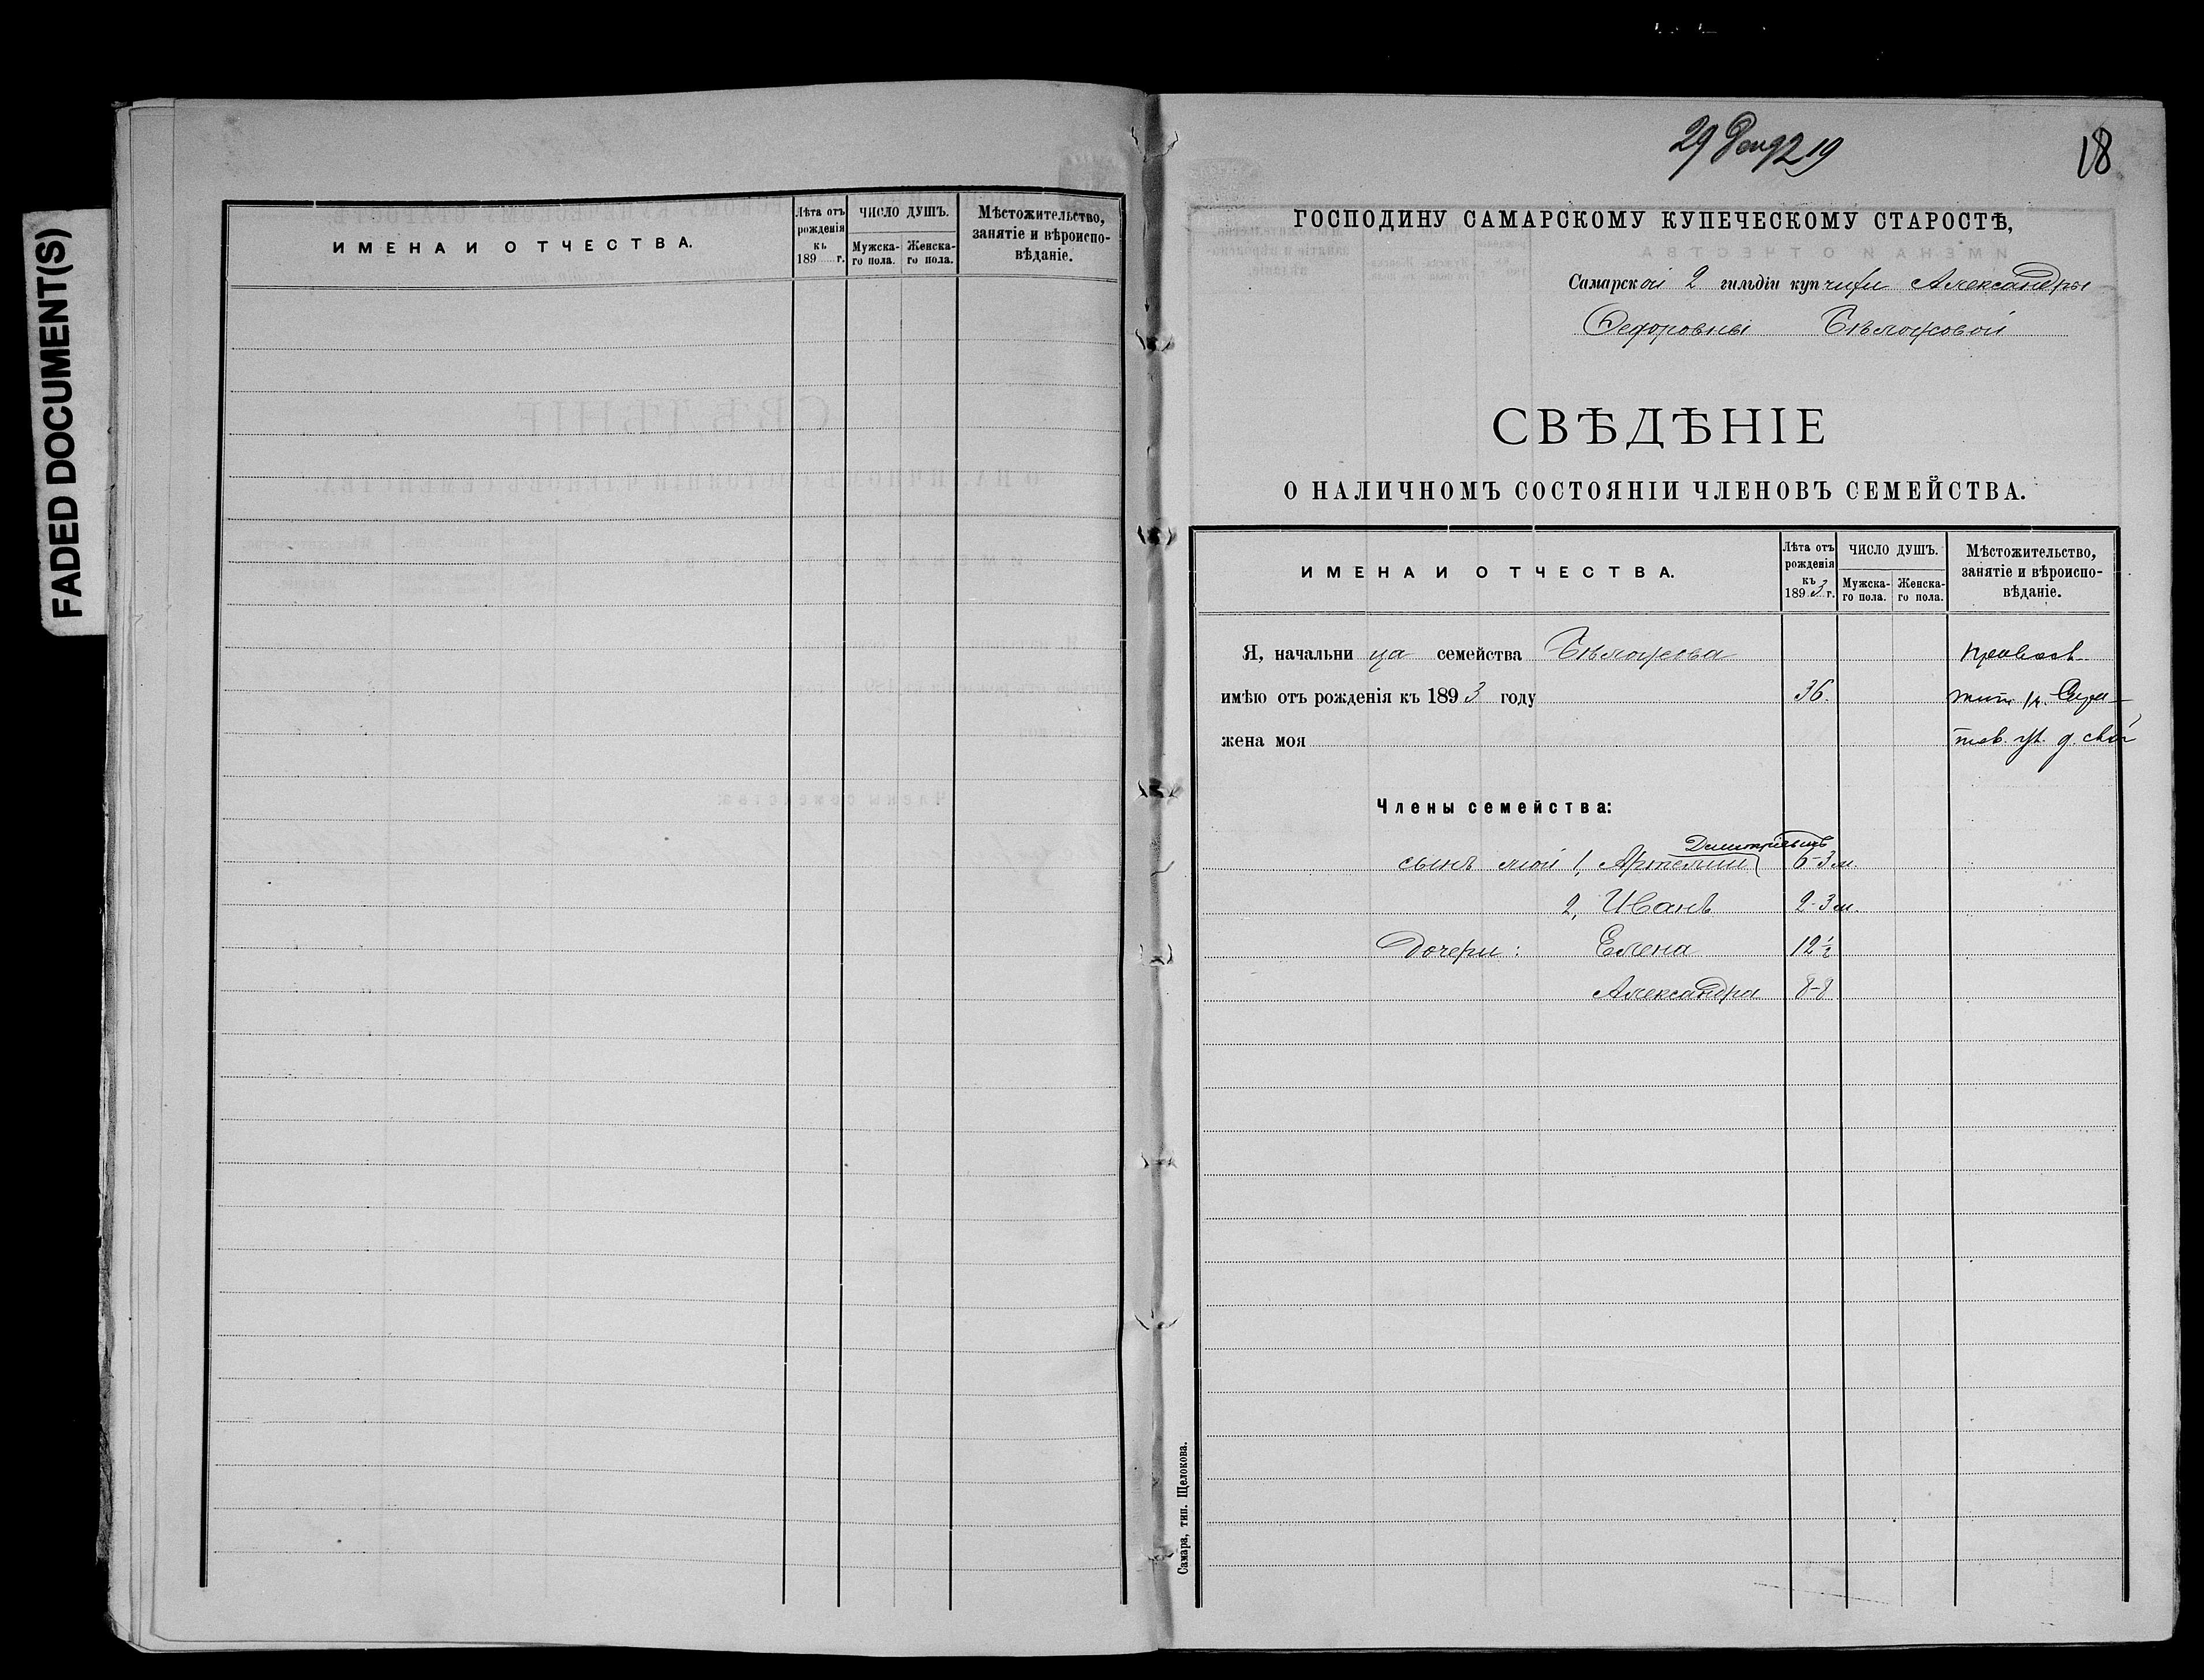 FADED DOCUMENT(S)
ИМЕНА И ОТЧЕСТВА.
Лѣта отъ рожденія къ 189 г.
ЧИСЛО ДУШЪ.
Мужска-го пола.
Женска-го пола.
Мѣстожительство, занятіе и вѣроиспо-вѣданіе.
29 92 19
18
ГОСПОДИНУ САМАРСКОМУ КУПЕЧЕСКОМУ СТАРОСТѢ,
Самарской 2 гильдіи купчихи Александры
Федоровны
СВѢДѢНІЕ
О НАЛИЧНОМЪ СОСТОЯНІИ ЧЛЕНОВЪ СЕМЕЙСТВА.
ИМЕНА И ОТЧЕСТВА.
Лѣта отъ рожденія къ 1893 г.
ЧИСЛО ДУШЪ.
Мужска-го пола.
Женска-го пола.
Мѣстожительство, занятіе и вѣроиспо-вѣданіе.
Я, начальница семейства
имѣю отъ рожденія къ 1893 году 36.
жена моя
Члены семейства:
Дмитріевичъ
сынъ мой 1, Артемій 6-3 м.
2, Иванъ 2-3 м.
Дочери: Елена 12 1/2
Александра 8-8
Самара, тип. Щелокова.